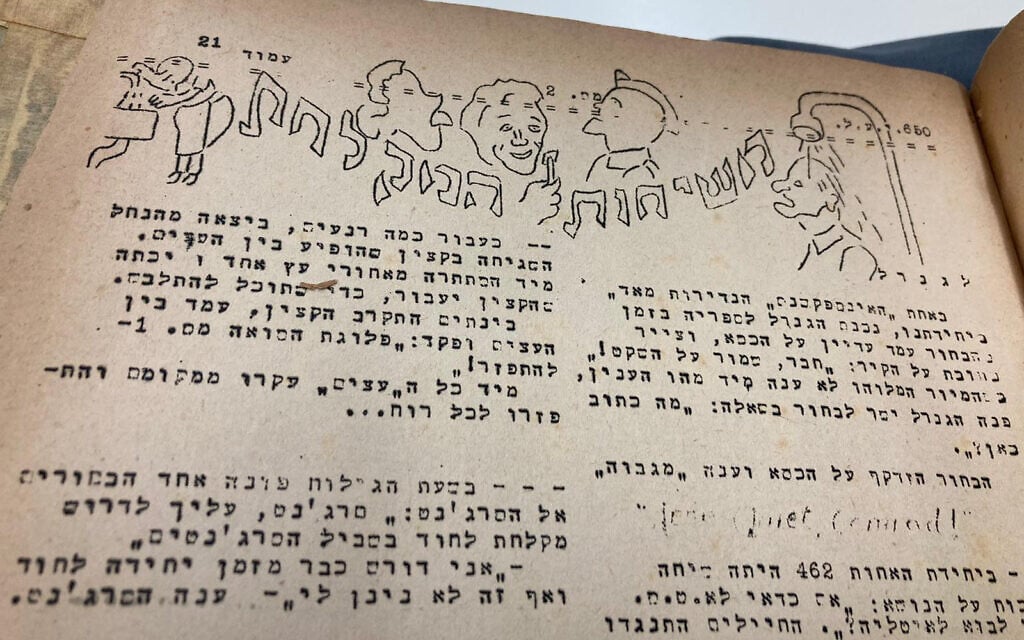 עמוד 21
מס. 2
650 י.ע.ל.
לגנרל
באחת "האינספקשנס" הנדירות מאד
ביחידתנו, נכנס הגנרל לספריה בזמן
הבחור עמד עדיין על הכסא, וצייר
כתובת על הקיר: "חבר, שמור על השקט!"
כשהמיור המלוהו לא ענה מיד מהו הענין,
פנה הגנרל ישר לבחור בשאלה: "מה כתוב
כאן?".
הבחור הזדקף על הכסא וענה "מגבוה"
Quiet, Comrad!"
- ביחידת האחות 462 היתה שיחה
על הנושא: "אם כדאי לא.ט.ס.
לבוא לאיטליה?". החיילים התנגדו
-- כעבור כמה רגעים, ביצאה מהנחל
השגיחה בקצין שהופיע בין העצים.
מיד הסתתרה מאחורי עץ אחד ו יכתה
שהקצין יעבור, כדי שתוכל להתלבש.
בינתים התקרב הקצין, עמד בין
העצים ופקד: "פלוגת הסואה מס. 1-
להתפזר!"
מיד כל ה"עצים" עקרו ממקומם והת-
פזרו לכל רוח...
- - - בשעת הגילוח פונה אחד הבחורים
אל הסרג'נט: "סרג'נט, עליך לדרוש
מקלחת לחוד בשביל הסרג'נטים"
-"אני דורש כבר מזמן יחידה לחוד
ואף זה לא ניתן לי"- ענה הסרג'נט.